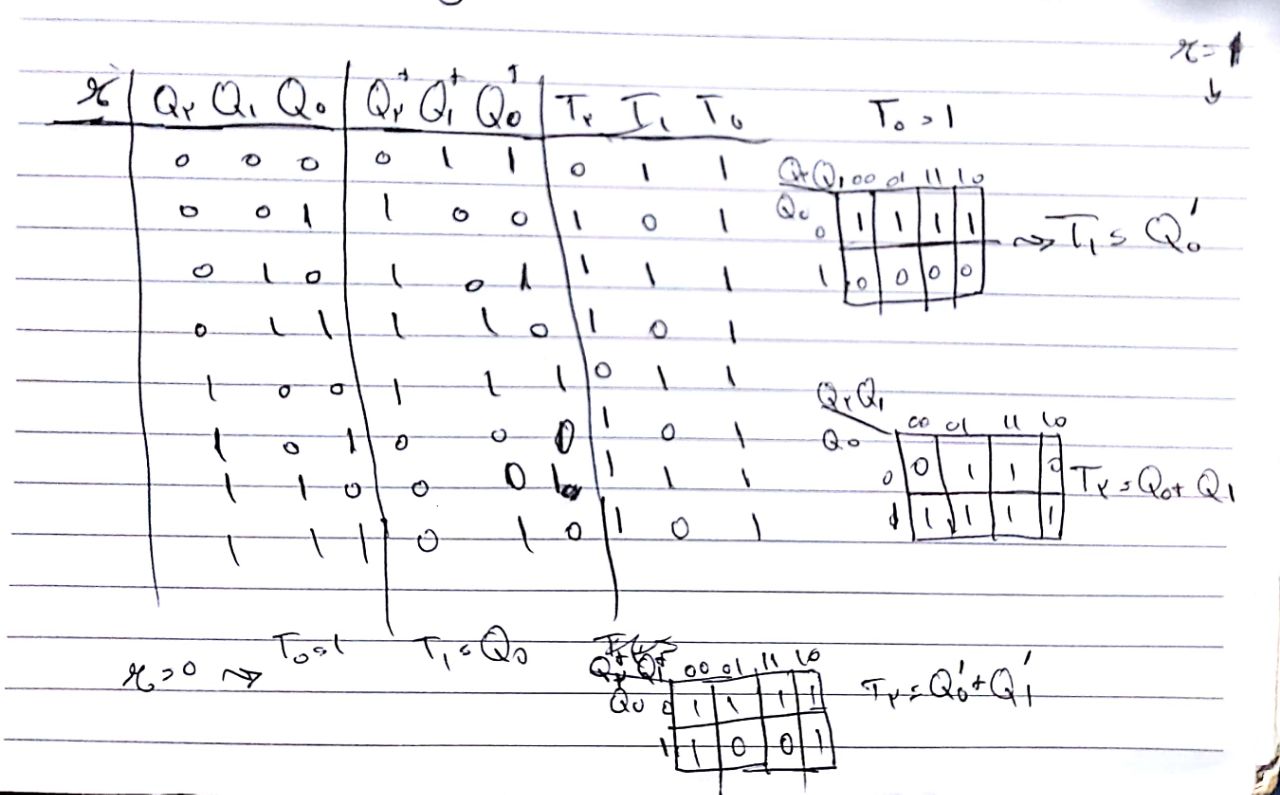 x=1
↓
x | Q₂ Q₁ Q₀ | Q₂⁺ Q₁⁺ Q₀⁺ | T₂ T₁ T₀
0 0 0 | 0 1 1 | 0 1 1
0 0 1 | 1 0 0 | 1 0 1
0 1 0 | 1 0 1 | 1 1 1
0 1 1 | 1 1 0 | 1 0 1
1 0 0 | 1 1 1 | 0 1 1
1 0 1 | 0 0 0 | 1 0 1
1 1 0 | 0 0 1 | 1 1 1
1 1 1 | 0 1 0 | 1 0 1
T₀=1
Q₂Q₁ 00 01 11 10
Q₀ 0 | 1 | 1 | 1 | 1
1 | 0 | 0 | 0 | 0
⇝ T₁ = Q₀′
Q₂Q₁ 00 01 11 10
Q₀ 0 | 0 | 1 | 1 | 0
1 | 1 | 1 | 1 | 1
T₂ = Q₀+Q₁
x=0 ⇝ T₀=1 T₁=Q₀
Q₂⁺ Q₁⁺ 00 01 11 10
Q₀ 0 | 1 | 1 | 1 | 1
1 | 1 | 0 | 0 | 1
T₂ = Q₀′+Q₁′